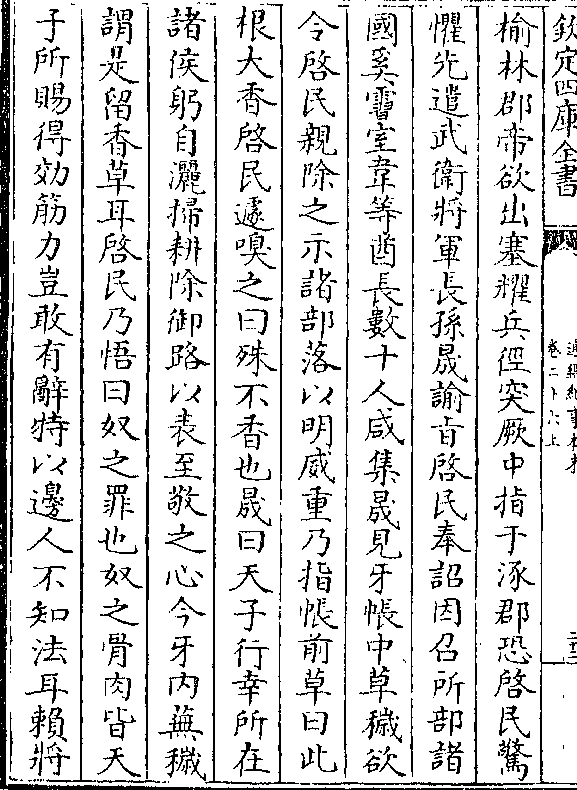 欽定四庫全書
卷二十六上
榆林郡帝欲出塞耀兵徑突厥中指于涿郡恐啓民驚
懼先遣武衛將軍長孫晟諭㫖啓民奉詔因召所部諸
國奚霫室韋等酋長數十人咸集晟見牙帳中草穢欲
令啓民親除之示諸部落以明威重乃指帳前草曰此
根大香啓民遽嗅之曰殊不香也晟曰天子行幸所在
諸侯躬自灑掃耕除御路以表至敬之心今牙內蕪穢
謂是留香草耳啓民乃悟曰奴之罪也奴之骨肉皆天
子所賜得効筋力豈敢有辭特以邊人不知法耳賴將